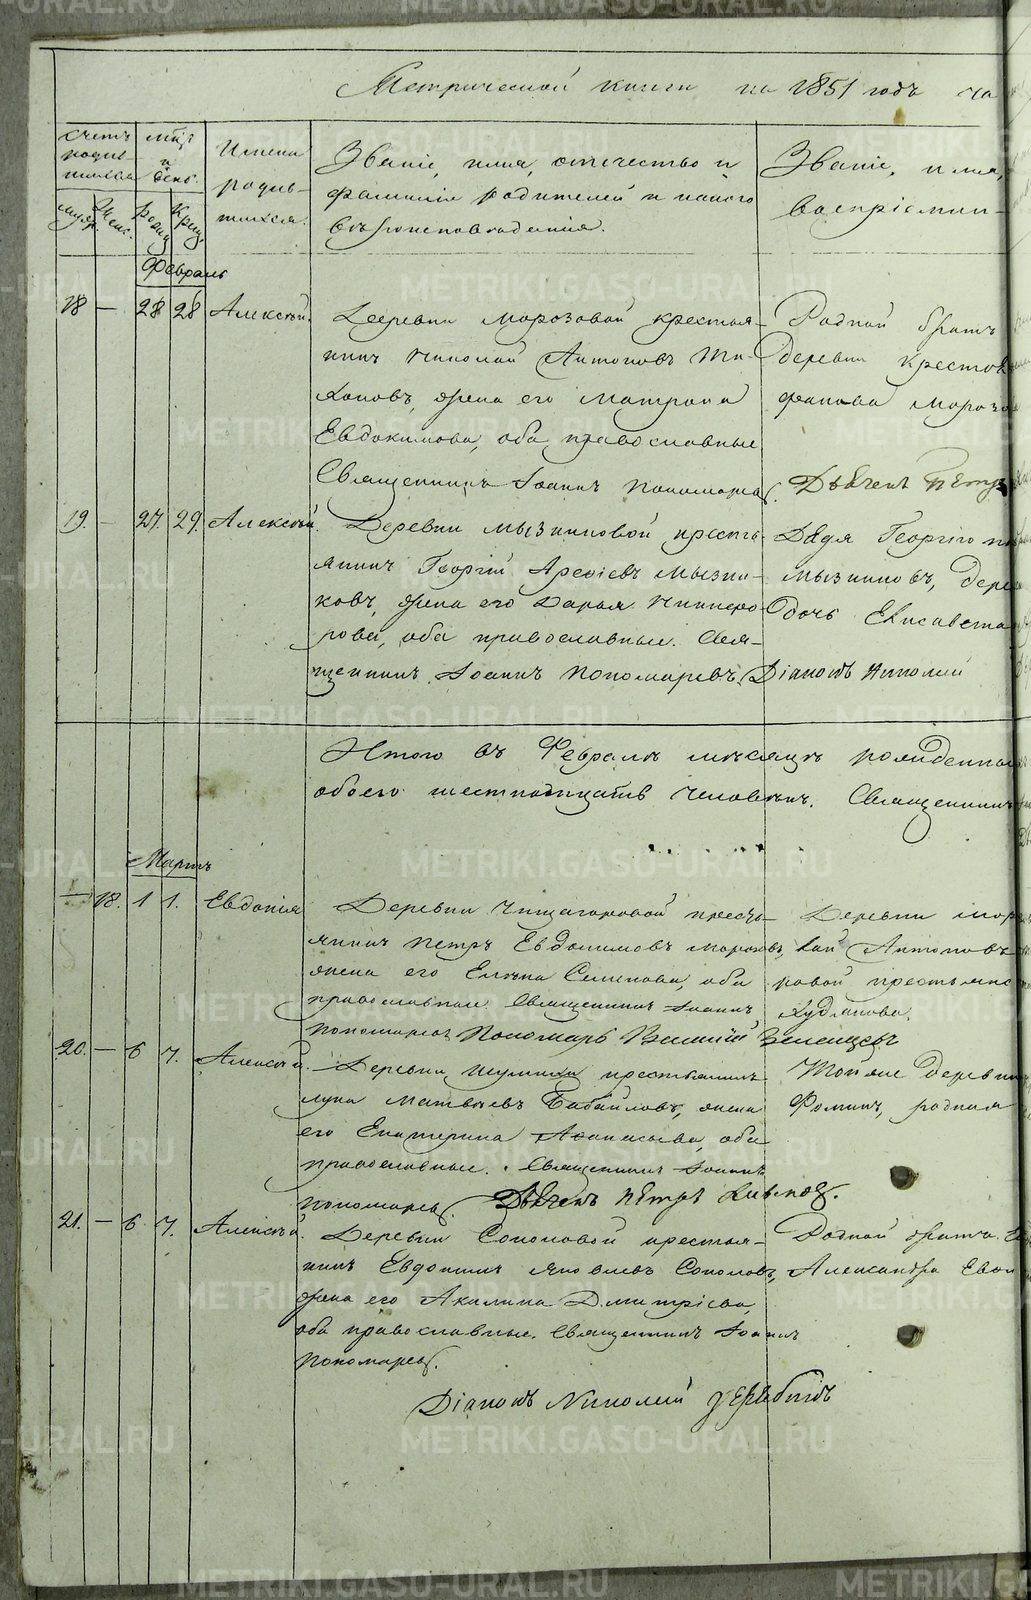 Метрической книги на 1851 годъ ча
Счетъ родив-шихся
муж. женс.
мѣс. и день.
рожд. Крещ.
Имена родив-шихся.
Званіе, имя, отечество и
фамиліи родителей и какого
вѣроисповѣданія.
Званіе, имя,
воспріемни-
Февраль
18 — 28 28 Алексѣй.
Деревни Морозовой крестья-
нинъ Николай Антоновъ Ти-
хоновъ, жена его Матрона
Евдокимова, оба православные
Священникъ Іоаннъ Пономаревъ.
Родной братъ
деревни Крестов
фанова Мороз
Дьячекъ Петръ
19. — 27. 29. Алексѣй.
Деревни Мызниковой кресть-
янинъ Георгій Арефіевъ Мызни-
ковъ, жена его Дарья Никифо-
рова, оба православные. Свя-
щенникъ Іоаннъ Пономаревъ.
Дядя Георгіо
Мызниковъ, дере
дочь Елисавета
Діаконъ Николай
Итого въ Февралѣ мѣсяцѣ рожденны
обоего шестнадцать человѣкъ. Священникъ
Мартъ
— 18. 1 1. Евдокія
Деревни Чищагоровой кресть-
янинъ Петръ Евдокимовъ Морозовъ,
жена его Елена Семенова, оба
православные. Священникъ Іоаннъ
Пономаревъ. Пономарь Василій Зеленцовъ
Деревни Мор
кай Антоновъ
ровой крестьянс
Худякова.
20. — 6 7. Алексѣй.
Деревни Шумихи крестьянинъ
Лука Матвѣевъ Бабайловъ, жена
его Екатерина Афанасьева, оба
православные. Священникъ Іоаннъ
Пономаревъ. Дьячекъ Петръ
Той же деревни
Фоминъ, родная
21. — 6 7. Алексѣй.
Деревни Соколовой крестья-
нинъ Евдокимъ Яковлевъ Соколовъ,
жена его Акилина Дмитріева,
оба православные. Священникъ Іоаннъ
Пономаревъ.
Родной братъ
Александра Евдо
Діаконъ Николай
METRIKI.GASO-URAL.RU